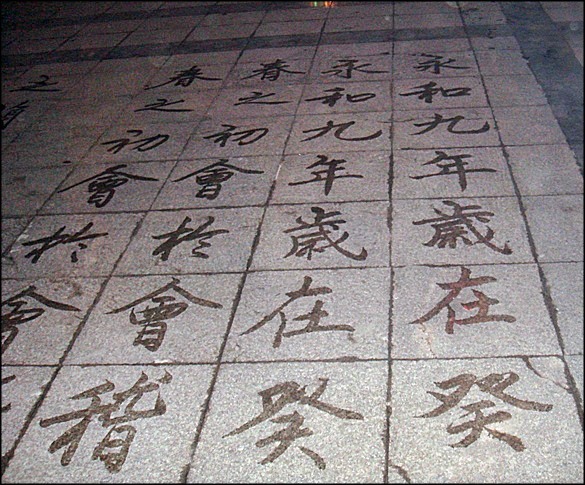 永和九年歲在癸
永和九年歲在癸
春之初會於會稽
春之初會於會
之